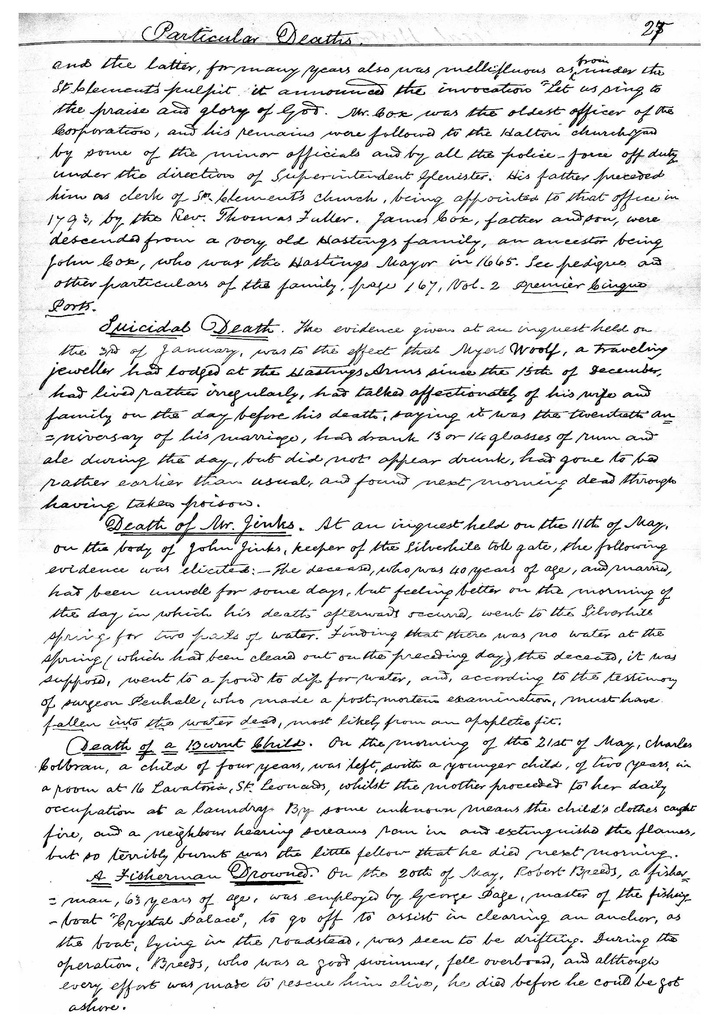 Particular Deaths. 27
and the latter, for many years also was mellifluous as from under the
St. Clement's pulpit it announced the invocation "Let us sing to
the praise and glory of God. Mr. Cox was the oldest officer of the
Corporation, and his remains were followed to the Halton churchyard
by some of the minor officials and by all the police-force off duty
under the direction of Superintendent Glenister. His father preceded
him as clerk of St. Clement's church, being appointed to that office in
1793, by the Rev. Thomas Fuller. James Cox, father and son, were
descended from a very old Hastings family, an ancestor being
John Cox, who was the Hastings Mayor in 1665. See pedigree and
other particulars of the family, page 167, Vol. 2 Premier Cinque
Port.
Suicidal Death. The evidence given at an inquest held on
the 3rd of January, was to the effect that Myers Woolf, a traveling
jeweller had lodged at the Hastings Arms since the 13th of December,
had lived rather irregularly, had talked affectionately of his wife and
family on the day before his death, saying it was the twentieth an=
=niversary of his marriage, had drank 13 or 14 glasses of rum and
ale during the day, but did not appear drunk, had gone to bed
rather earlier than usual, and found next morning dead through
having taken poison.
Death of Mr. Jinks. At an inquest held on the 11th of May,
on the body of John Jinks, keeper of the Silverhill toll gate, the following
evidence was elicited:— The deceased, who was 40 years of age, and married,
had been unwell for some days, but feeling better on the morning of
the day in which his death afterwards occurred, went to the Silverhill
spring for two pails of water. Finding that there was no water at the
spring (which had been cleared out on the preceding day) the deceased, it was
supposed, went to a pond to dip for water, and, according to the testimony
of surgeon Penhall, who made a post mortem examination, must have
fallen into the water dead, most likely from an apoplectic fit.
Death of a Burnt Child. On the morning of the 21st of May, Charles
Colbran, a child of four years, was left, with a younger child, of two years, in
a room at 16 Lavatoria, St. Leonards, whilst the mother proceeded to her daily
occupation at a laundry. By some unknown means the child's clothes caught
fire, and a neighbour hearing screams ran in and extinguished the flames,
but so terribly burnt was the little fellow that he died next morning.
A Fisherman Drowned. On the 20th of May, Robert Breeds, a fisher=
=man, 63 years of age, was employed by George Page, master of the fishing
-boat "Crystal Palace", to go off to assist in clearing an anchor, as
the boat, lying in the roadstead, was seen to be drifting. During the
operation, Breeds, who was a good swimmer, fell overboard, and although
every effort was made to rescue him alive, he died before he could be got
ashore.